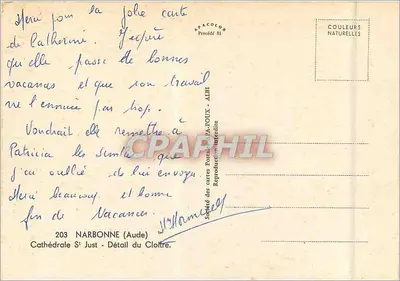 Merci pour la jolie carte
de Catherine. J'espère
qu'elle passe de bonnes
vacances et que son travail
ne l'ennuie pas trop.
Voudrait elle remettre à
Patricia les que
j'ai oublié de lui envoyer
Merci beaucoup et bonne
fin de Vacances.
203 NARBONNE (Aude)
Cathédrale St Just - Détail du Cloître.
APACOLOR
Procédé 81
Société des cartes Postales APA-POUX - ALBI
Reproduction interdite
COULEURS
NATURELLES
CPAPHIL